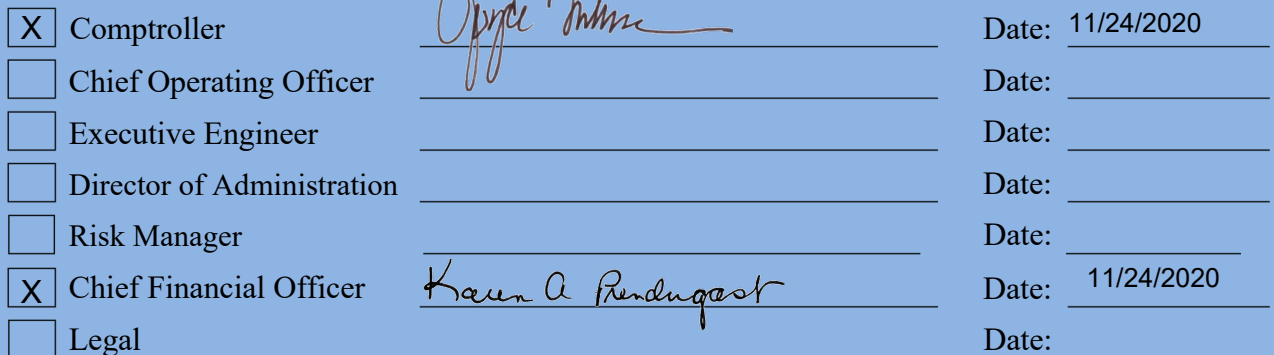 X Comptroller Date: 11/24/2020
Chief Operating Officer Date:
Executive Engineer Date:
Director of Administration Date:
Risk Manager Date:
X Chief Financial Officer Karen A Prendergast Date: 11/24/2020
Legal Date: